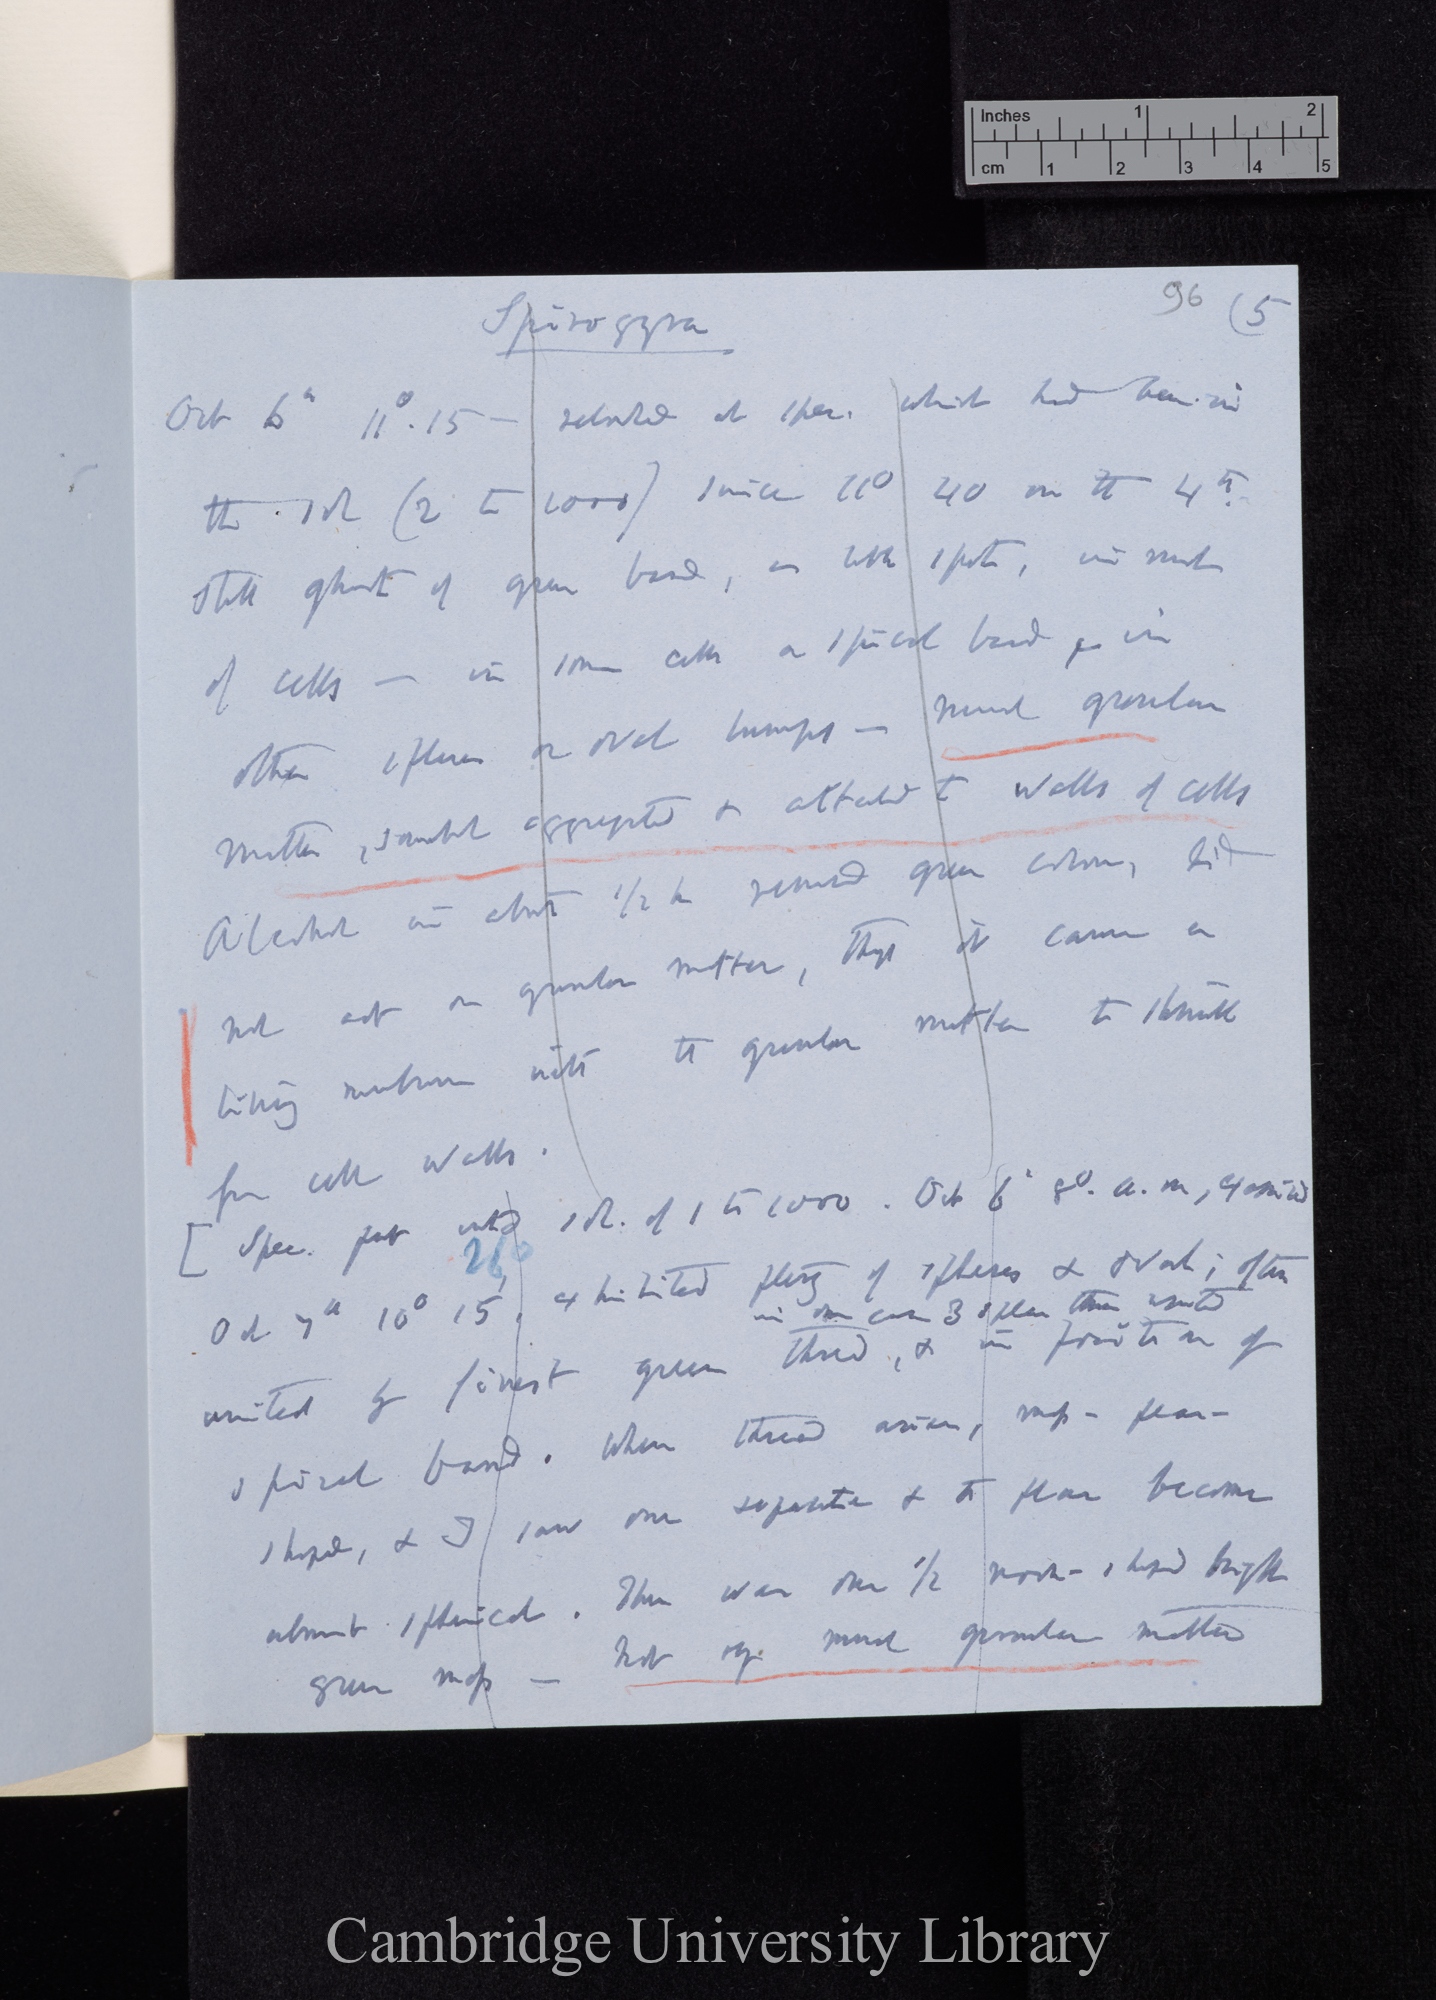 Inches 1 2
cm 1 2 3 4 5
96 (5
Spirogyra
Oct 6th 11°.15 — looked at spec. which had been in
the sol (2 to 1000) since 11° 40 on the 4th.
still ghost of green band, as little spots, in most
of cells — in some cells a spiral band in
other spheres or oval lumps — much granular
matter, somewhat aggregated & attached to walls of cells
Alcohol in about 1/2 h removed green colour, did
not act on granular matter, though it caused a
lining membrane with the granular matter to shrink
from cell walls.
[Spec. put into sol. of 1 to 1000. Oct 6' 8°. a.m, examined
26°
Oct 7th 10° 15', exhibited plenty of spheres & ovals; often
in one case 3 spheres thus united
united by finest green thread, & in position of
spiral band. When thread arises, pear-
shaped, & I saw one separate & the pear become
almost spherical. There was one 1/2 moon-shaped bright
green — Not much granular matter
Cambridge University Library